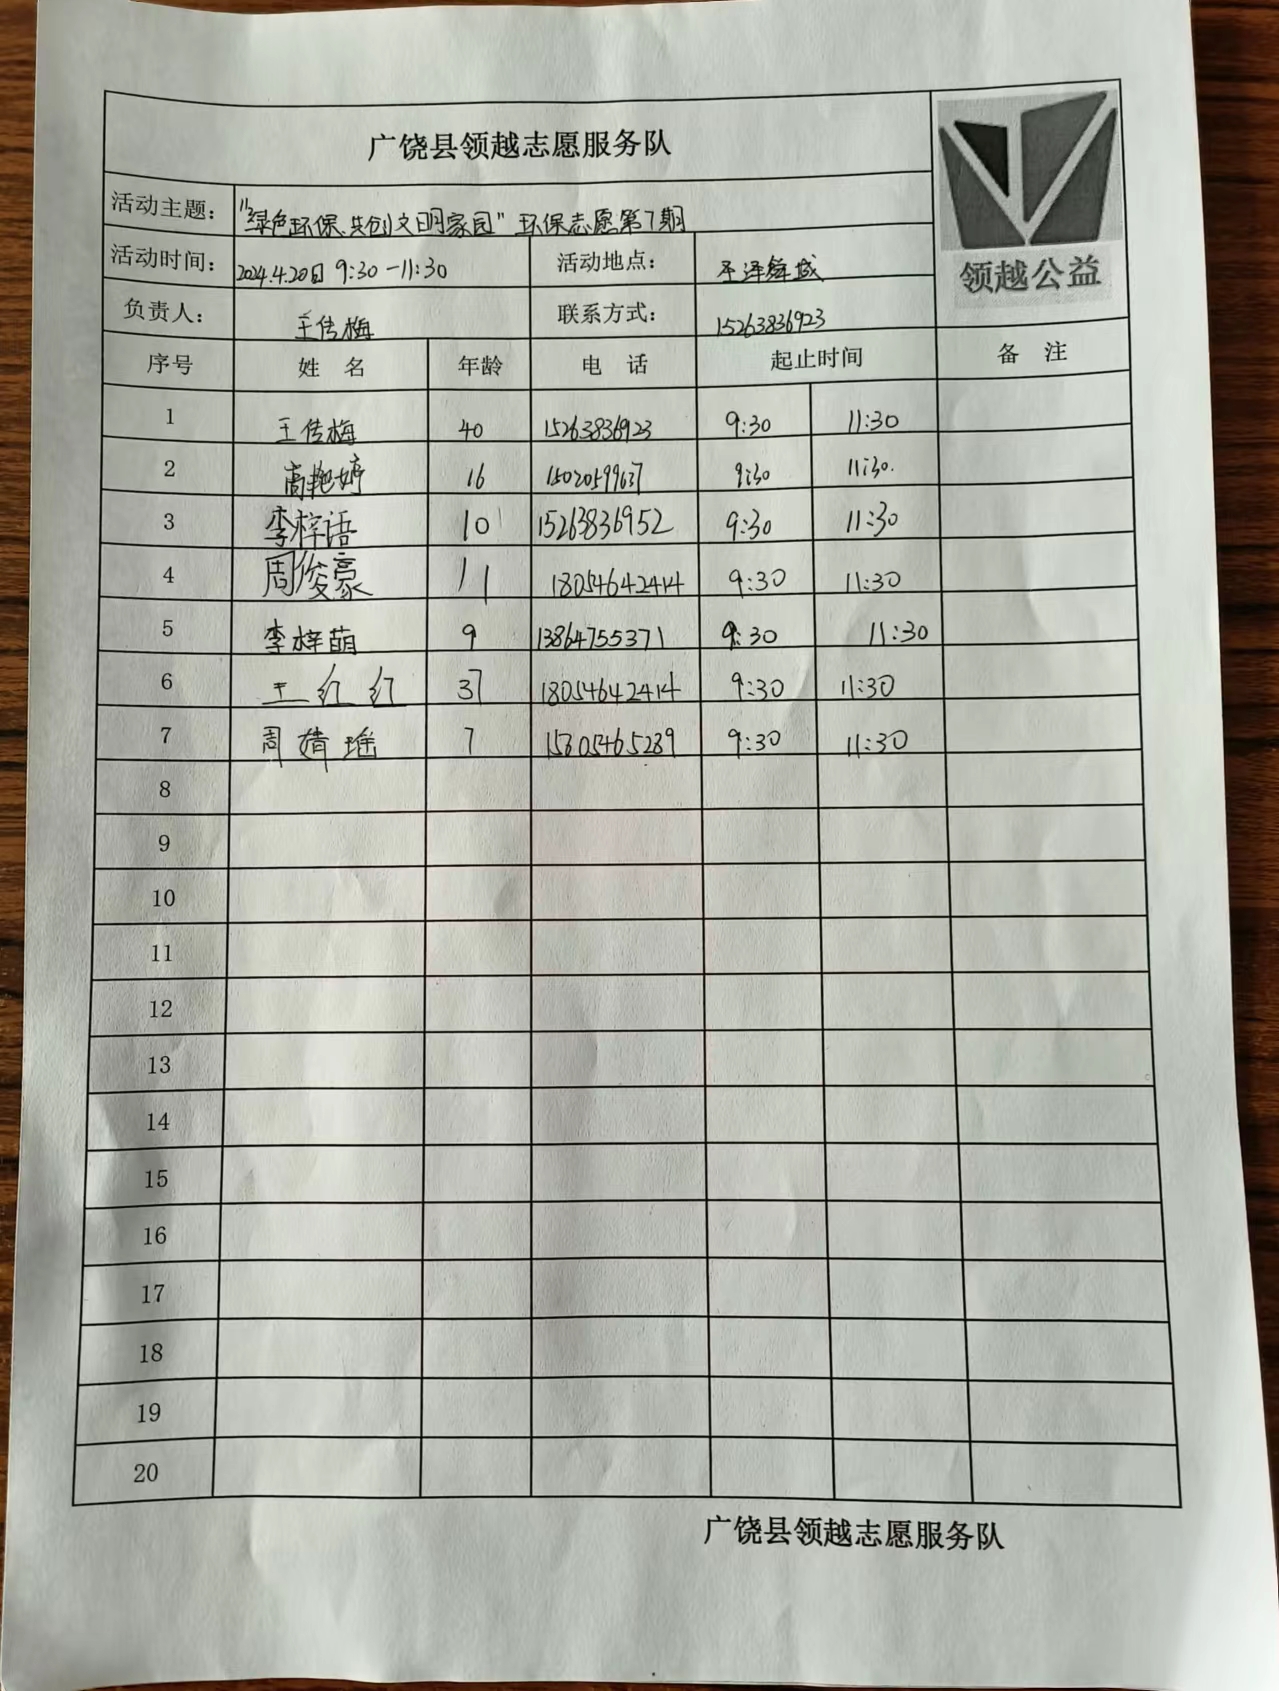 广饶县领越志愿服务队
领越公益
活动主题： “绿色环保、共创文明家园” 环保志愿第7期
活动时间： 2024.4.20日 9:30-11:30 活动地点：
负责人： 王传梅 联系方式： 15263836923
序号 姓 名 年龄 电 话 起止时间 备 注
1 王传梅 40 15263836923 9:30 11:30
2 高艳婷 16 15020599637 9:30 11:30.
3 李梓语 10 15263836952 9:30 11:30
4 周俊豪 11 18054642414 9:30 11:30
5 李梓萌 9 13864755371 9:30 11:30
6 王红红 37 18054642414 9:30 11:30
7 周婧瑶 7 15805465289 9:30 11:30
8
9
10
11
12
13
14
15
16
17
18
19
20
广饶县领越志愿服务队